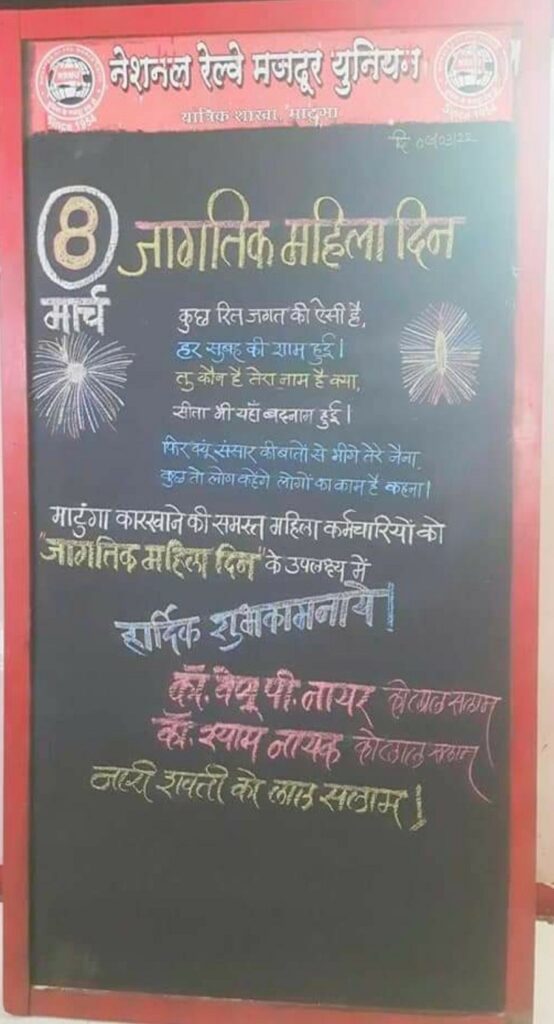 नेशनल रेल्वे मजदूर युनियन
यांत्रिक शाखा, माटुंगा
Since 1954
Since 1954
दि ०८/०३/२२
8 जागतिक महिला दिन
मार्च
कुछ रित जगत की ऐसी है,
हर सुबह की शाम हुई।
तु कौन है तेरा नाम है क्या,
सीता भी यहाँ बदनाम हुई।
फिर क्यूं संसार की बातों से भीगे तेरे नैना,
कुछ तो लोग कहेंगे लोगों का काम है कहना।
माटुंगा कारखाने की समस्त महिला कर्मचारियों को
"जागतिक महिला दिन" के उपलक्ष्य में
हार्दिक शुभकामनाये!
कॉ. वेणू पी. नायर को लाल सलाम
कॉ. श्याम नायक को लाल सलाम
नारी शक्ती को लाल सलाम!